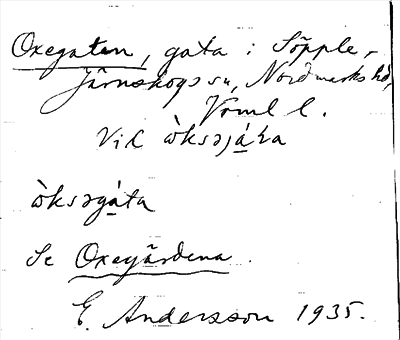 Oxegatan, gata i Sôpple,
Järnskogs sn, Nordmarks hd,
Vrml l.
Vid
òksəgáta
Se Oxegårdena.
E. Andersson 1935.